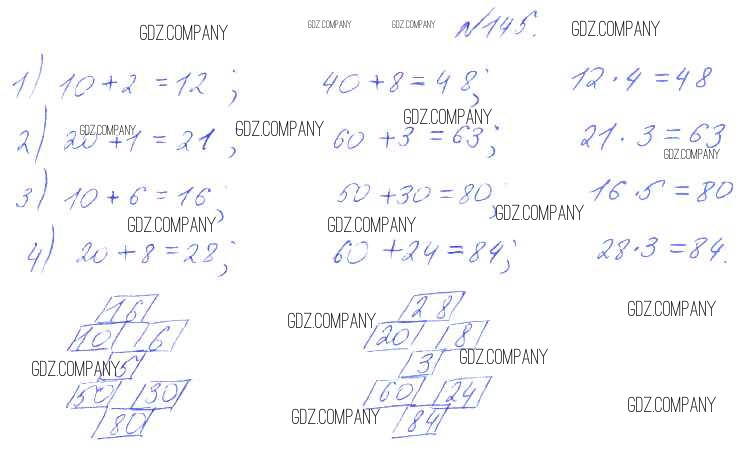 GDZ.COMPANY GDZ.COMPANY GDZ.COMPANY №145. GDZ.COMPANY
1) 10+2=12; 40+8=48; 12·4=48
GDZ.COMPANY GDZ.COMPANY GDZ.COMPANY
2) 20+1=21; 60+3=63; 21·3=63
GDZ.COMPANY
3) 10+6=16; 50+30=80; 16·5=80
GDZ.COMPANY GDZ.COMPANY GDZ.COMPANY
4) 20+8=28; 60+24=84; 28·3=84.
16 28 GDZ.COMPANY
GDZ.COMPANY
10 6 20 8
GDZ.COMPANY 5 3 GDZ.COMPANY
50 30 60 24 GDZ.COMPANY
80 GDZ.COMPANY 84